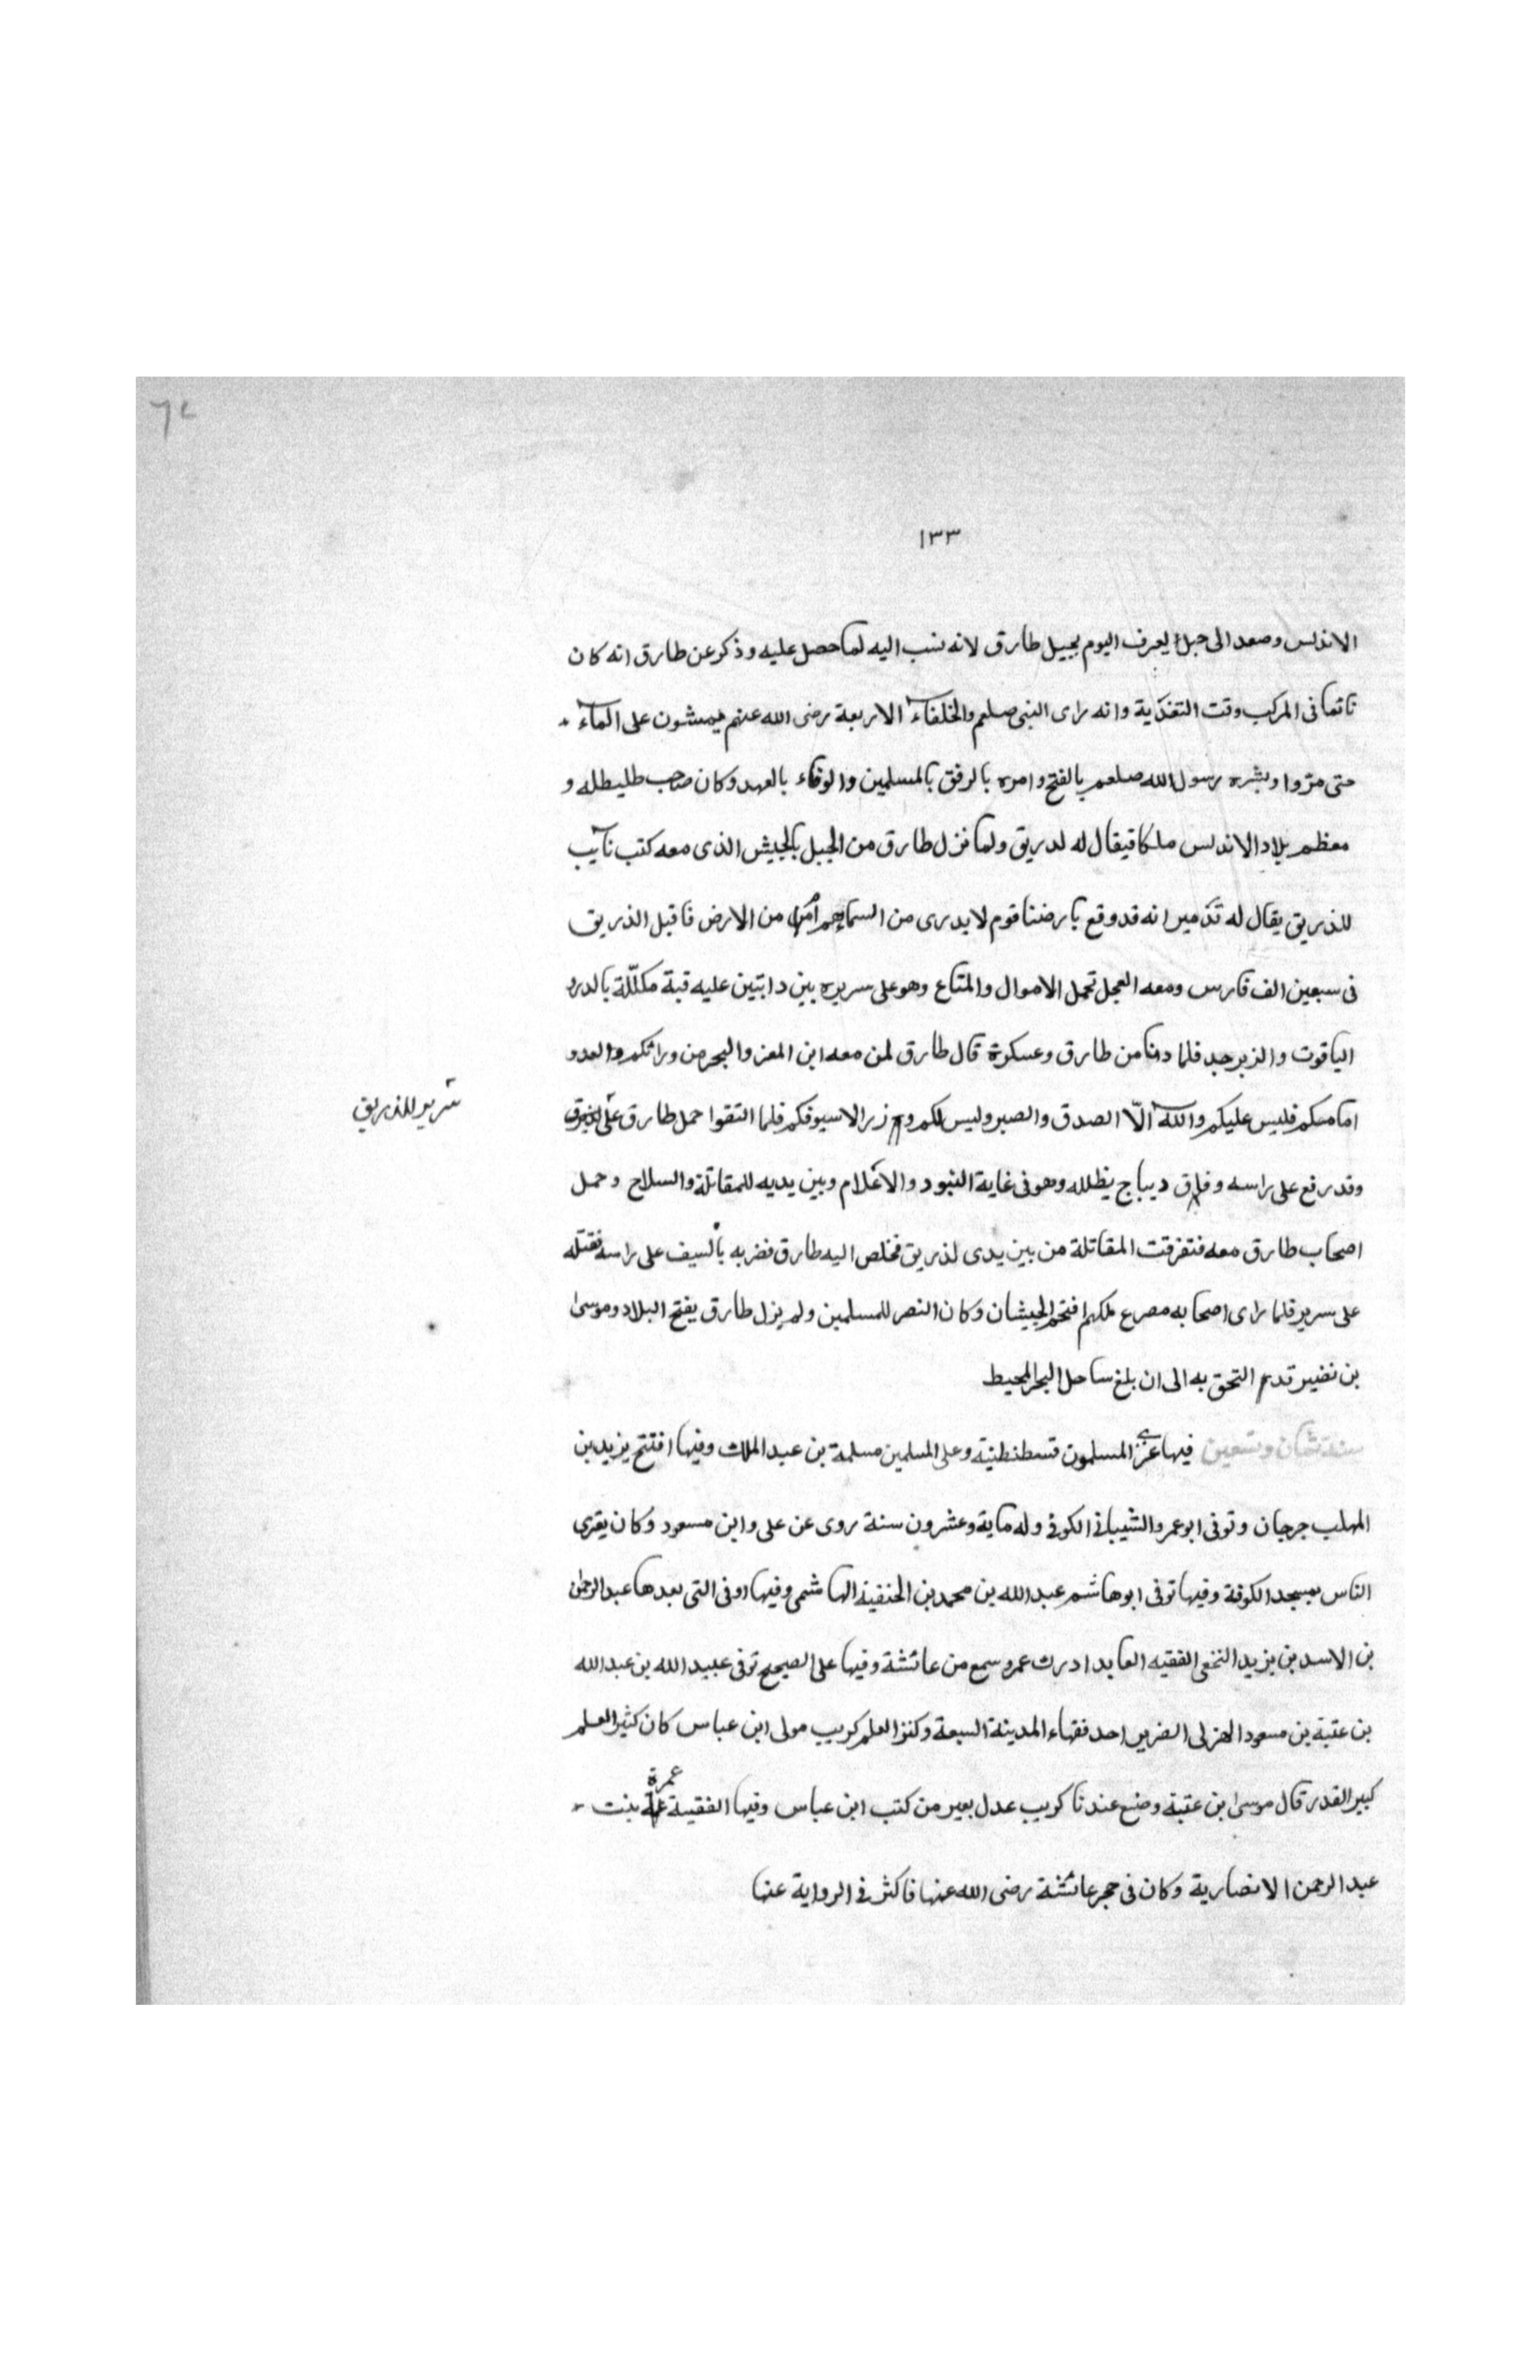 ١٣٣
الاندلس وصعد الى جبل يعرف اليوم بجبل طارق لانه نسب اليه لما حصل عليه وذكر عن طارق انه كان
نائما فى المركب وقت التغدّية وانه راى النبى صلعم والخلفاء الاربعة رضى الله عنهم يمشون على الماء
حتى مرّوا وبشره رسول الله صلعم بالفتح وامره بالرفق بالمسلمين والوفاء بالعهد وكان صاحب طليطله و
معظم بلاد الاندلس ملكا فيقال له لدريق ولما نزل طارق من الجبل بالجيش الذى معه كتب نايب
للذريق يقال له تذمير انه قد وقع بارضنا قوم لا يدرى من السماء هم ام من الارض فاقبل الذريق
فى سبعين الف فارس ومعه العجل تحمل الاموال والمتاع وهو على سريره بين دابتين عليه قبة مكلّلة بالدر و
الياقوت والزبرجد فلما دنا من طارق وعسكره قال طارق لمن معه اين المفر والبحر من ورائكم والعدو
امامكم فليس عليكم والله الّا الصدق والصبر وليس لكم وزر الا سيوفكم فلما التقوا حمل طارق على
سرير للذريق
وقد رفع على راسه ديباج يظلله وهو فى غاية البنود والاعلام وبين يديه للمقاتلة والسلاح وحمل
اصحاب طارق معه فتفرقت المقاتلة من بين يدى لذريق فخلص اليه طارق فضربه بالسيف على راسه فقتله
على سرير فلما راى اصحابه مصرع ملكهم الجيشان وكان النصر للمسلمين ولم يزل طارق يفتح البلاد وموسى
بن نضير قدم التحق به الى ان بلغ ساحل البحر المحيط
سنة ثمان وتسعين فيها غزى المسلمون قسطنطنية وعلى المسلمين مسلمة بن عبد الملك وفيها افتتح يزيد بن
المهلب جرجان وتوفى ابو عمرو الشيبانى الكوفى وله ماية وعشرون سنة روى عن على وابن مسعود وكان يقرى
الناس بمسجد الكوفة وفيها توفى ابو هاشم عبد الله بن محمد بن الحنفية الهاشمى وفيها او فى التى بعدها عبد الرحمن
بن الاسد بن يزيد النخعى الفقيه العابد ادرك عمر وسمع من عائشة وفيها على الصحيح توفى عبيد الله بن عبد الله
بن عتبة بن مسعود الهزلى الضرير احد فقهاء المدينة السبعة وكنز العلم كريب مولى ابن عباس كان كثير العلم
كبير القدر قال موسى ابن عقبة وضع عندنا كريب عدل بعير من كتب ابن عباس وفيها الفقيهة عمرة بنت
عبد الرحمن الانصارية وكان فى حجر عائشة رضى الله عنها فاكثر فى الرواية عنها